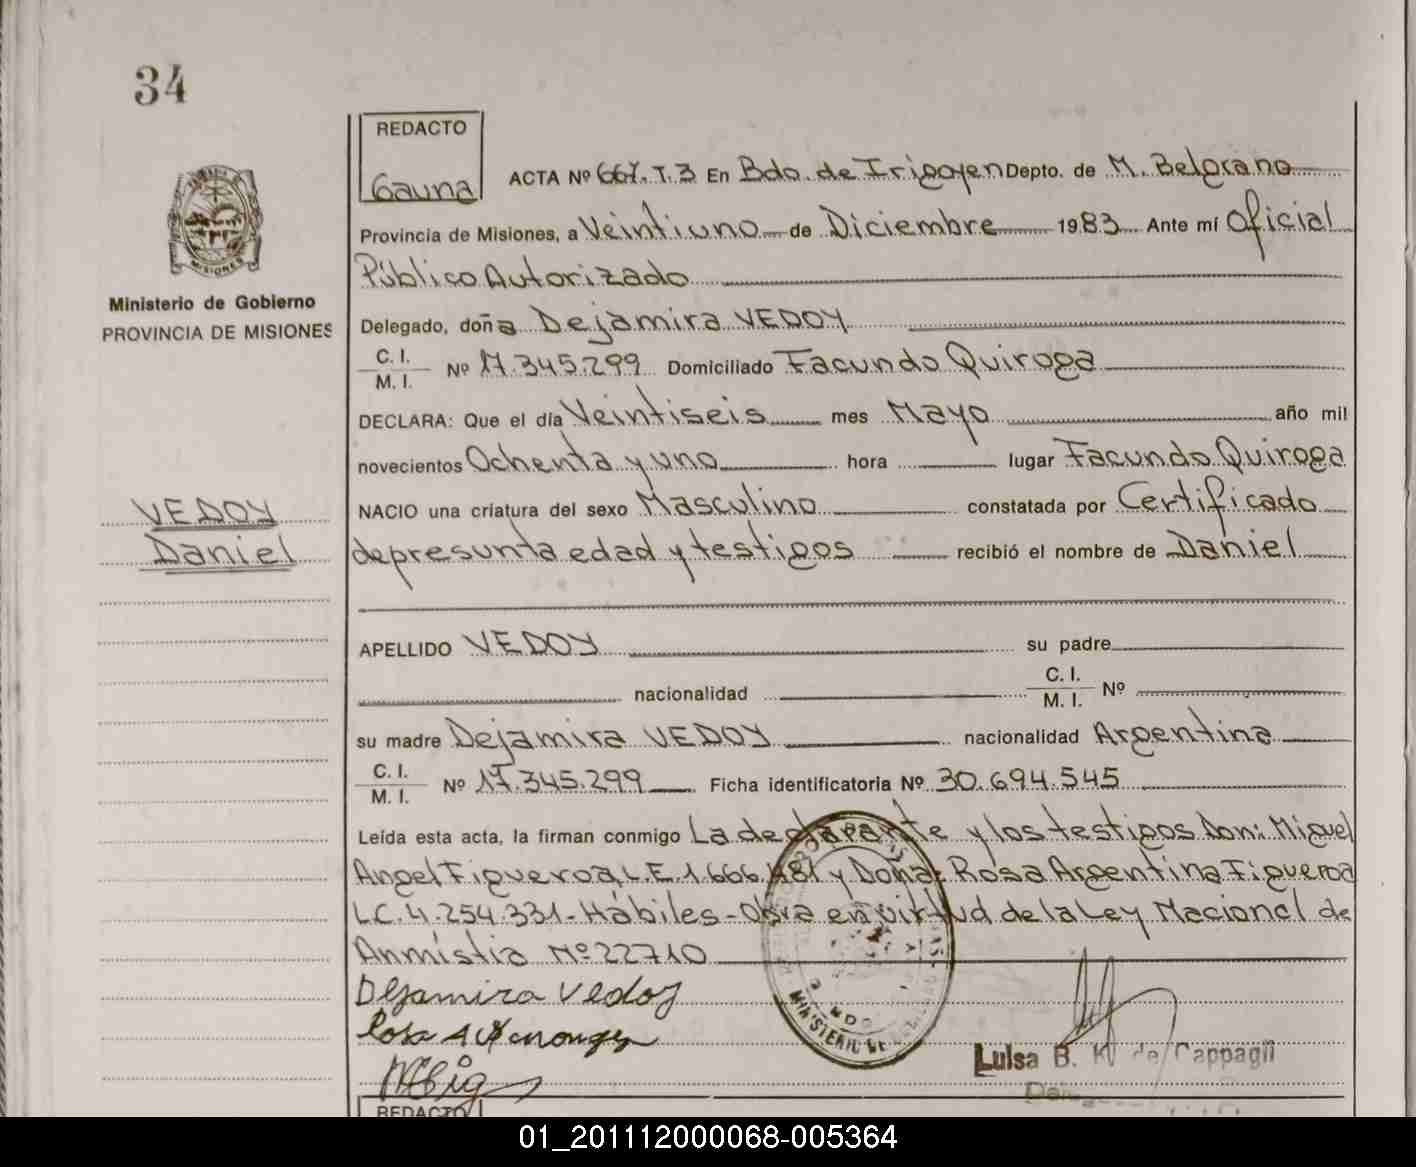 34
REDACTO
Gauna
ACTA Nº 667. T. 3 En Bdo. de Irigoyen Depto. de M. Belgrano
Provincia de Misiones, a Veintiuno de Diciembre 1983 Ante mí Oficial
Público Autorizado
Ministerio de Gobierno
PROVINCIA DE MISIONES
Delegado, doña Dejamira VEDOY
C. I.
M. I. Nº 17.345.299 Domiciliado Facundo Quiroga
DECLARA: Que el día Veintiseis mes Mayo año mil
novecientos Ochenta y uno hora lugar Facundo Quiroga
VEDOY
Daniel
NACIO una criatura del sexo Masculino constatada por Certificado
de presunta edad y testigos recibió el nombre de Daniel
APELLIDO VEDOY su padre
nacionalidad C. I.
M. I. Nº
su madre Dejamira VEDOY nacionalidad Argentina
C. I.
M. I. Nº 17.345.299 Ficha identificatoria Nº 30.694.545
Leída esta acta, la firman conmigo La declarante y los testigos Don: Miguel
Angel Figueroa, L.E. 1.666.481 y Doña: Rosa Argentina Figueroa
L.C. 4.254.331 - Hábiles - Obra en virtud de la Ley Nacional de
Anmistia Nº 22710
Dejamira Vedoy
Rosa A
MINISTERIO DE
Luisa B. K de Cappagli
REDACTO
01_201112000068-005364